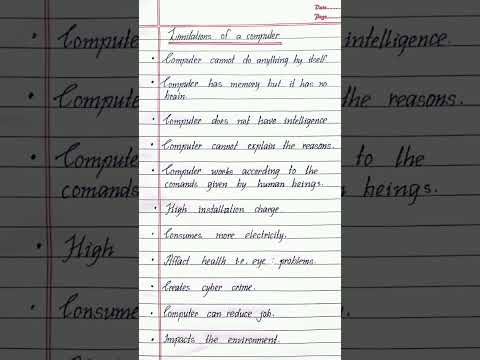 Date
Page
Limitations of a computer
• Computer cannot do anything by itself
• Computer has memory but it has no
brain.
• Computer does not have intelligence
• Computer cannot explain the reasons.
• Computer works according to the
comands given by human beings.
• High installation charge.
• Consumes more electricity.
• Affact health i.e. eye : problems.
• Creates cyber crime.
• Computer can reduce job.
• Impacts the environment.